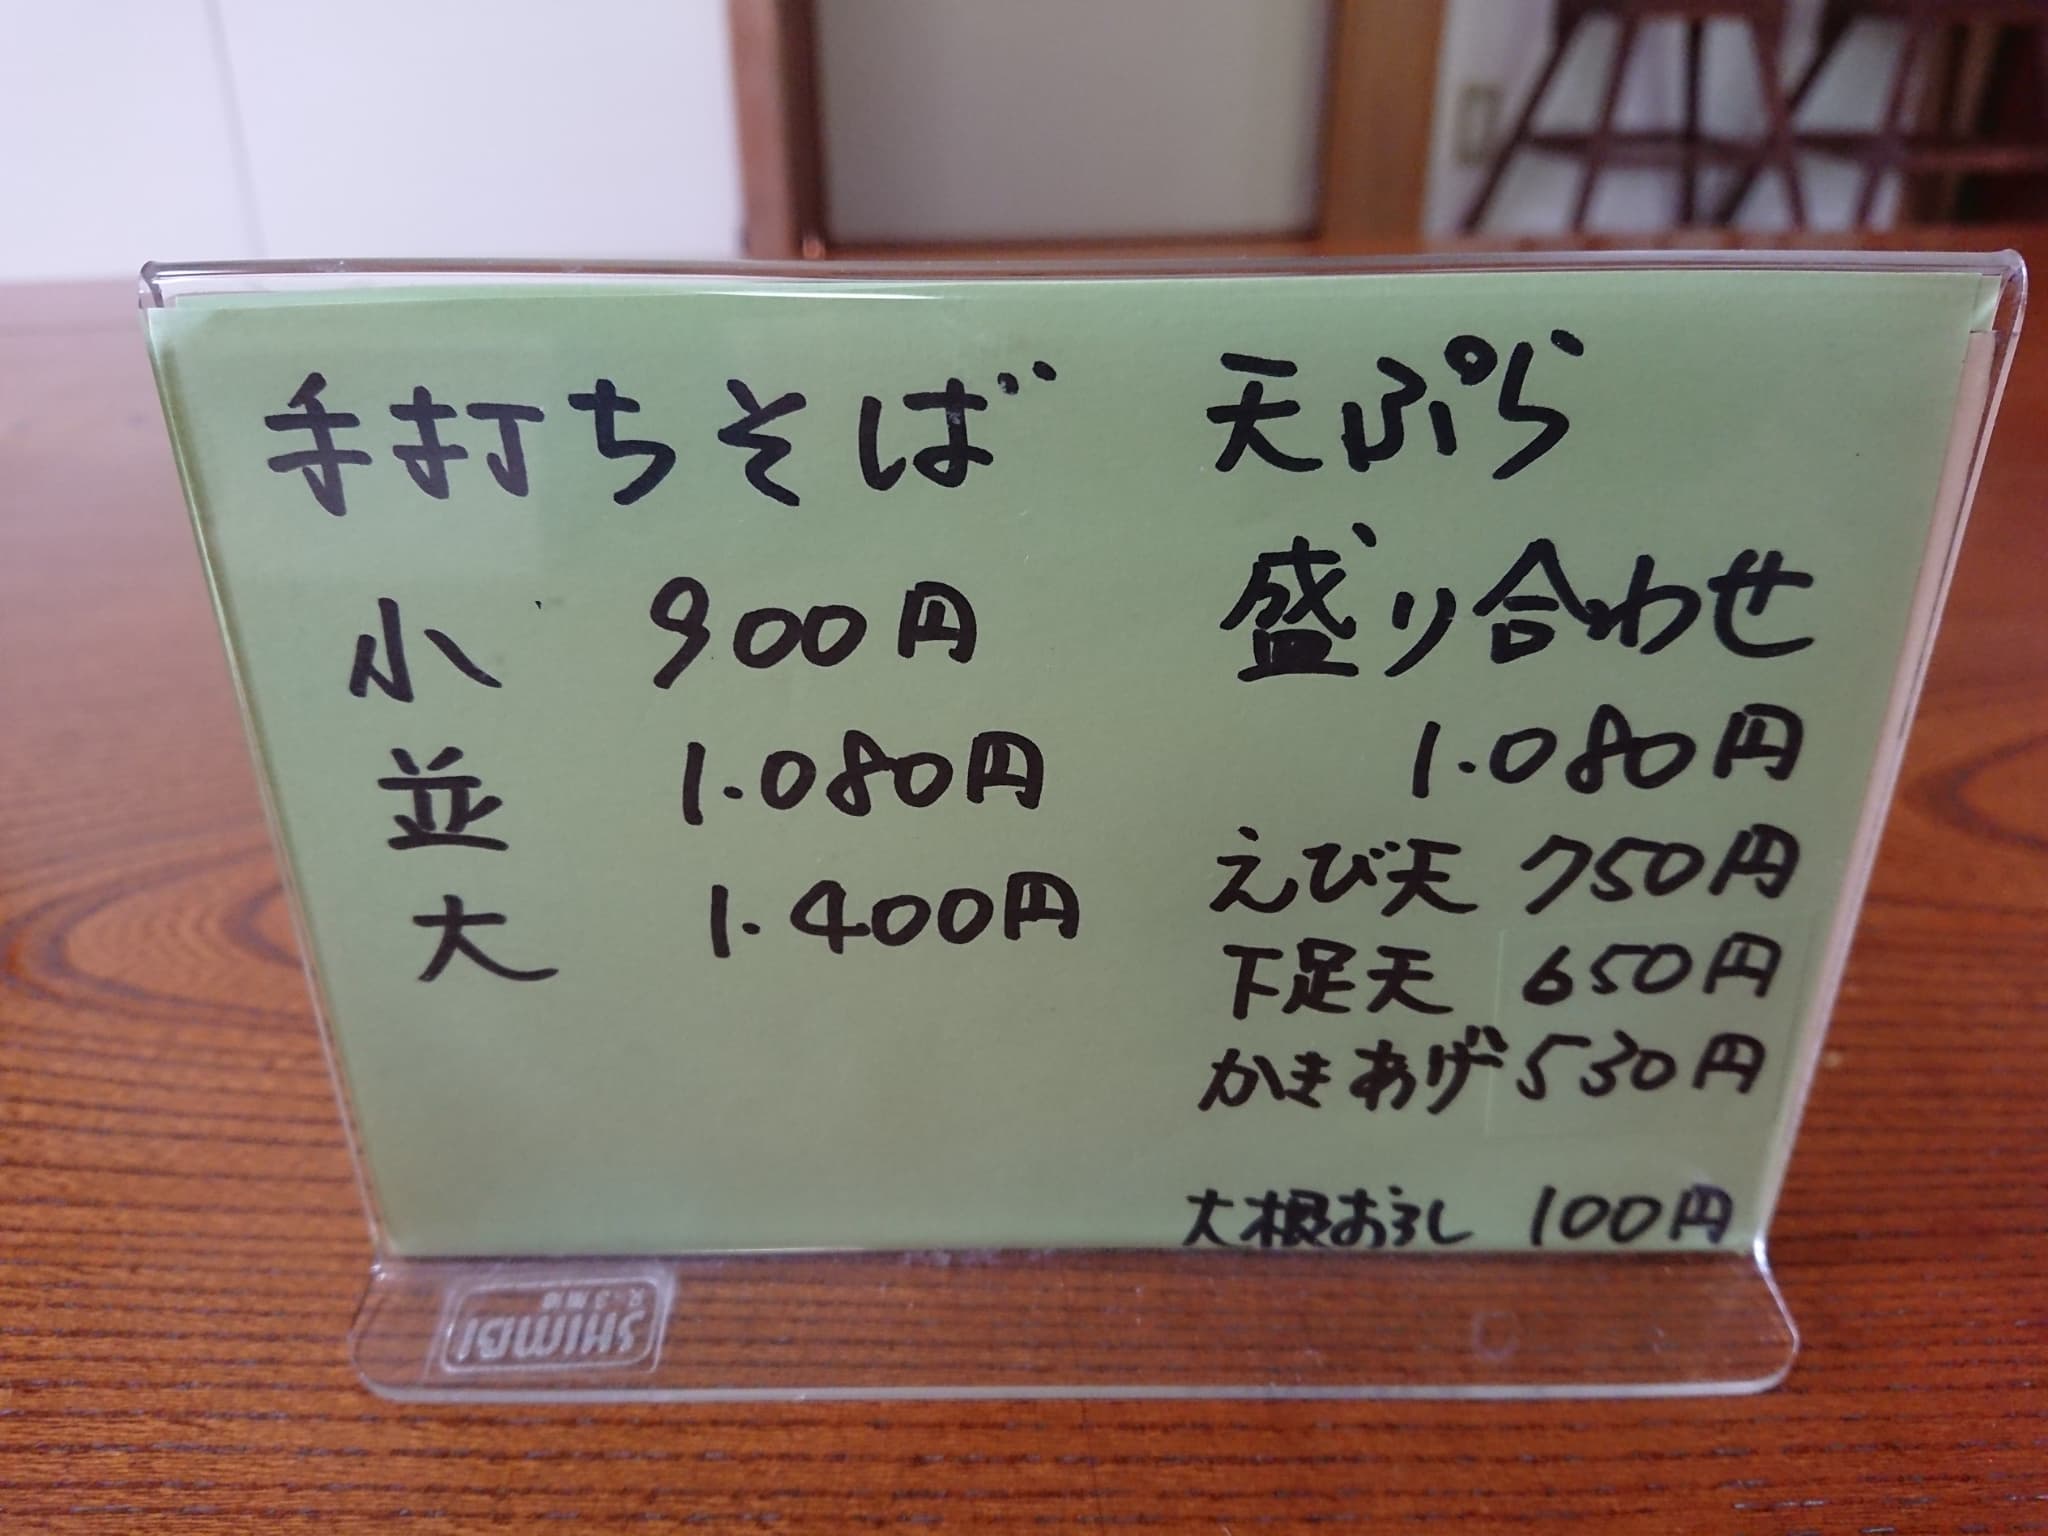 手打ちそば
小 900円
並 1.080円
大 1.400円
天ぷら
盛り合わせ
1.080円
えび天 750円
下足天 650円
かきあげ 530円
大根おろし 100円
SHIMBI